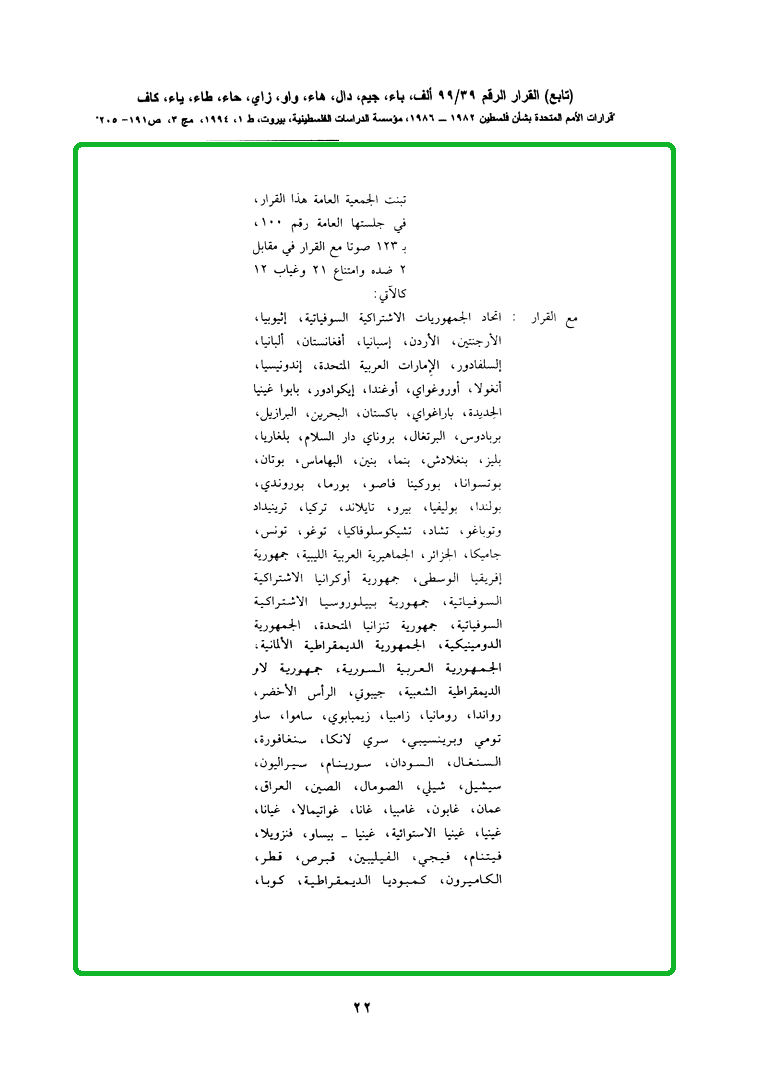 (تابع) القرار الرقم ٩٩/٣٩ ألف، باء، جيم، دال، هاء، واو، زاي، حاء، طاء، ياء، كاف
"قرارات الأمم المتحدة بشأن فلسطين ١٩٨٢ – ١٩٨٦، مؤسسة الدراسات الفلسطينية، بيروت، ط ١، ١٩٩٤، مج ٣، ص١٩١– ٢٠٥"
تبنت الجمعية العامة هذا القرار،
في جلستها العامة رقم ١٠٠،
بـ ١٢٣ صوتا مع القرار في مقابل
٢ ضده وامتناع ٢١ وغياب ١٢
كالآتي:
مع القرار : اتحاد الجمهوريات الاشتراكية السوفياتية، إثيوبيا،
الأرجنتين، الأردن، إسبانيا، أفغانستان، ألبانيا،
إلسلفادور، الإمارات العربية المتحدة، إندونيسيا،
أنغولا، أوروغواي، أوغندا، إيكوادور، بابوا غينيا
الجديدة، باراغواي، باكستان، البحرين، البرازيل،
بربادوس، البرتغال، بروناي دار السلام، بلغاريا،
بليز، بنغلادش، بنما، بنين، البهاماس، بوتان،
بوتسوانا، بوركينا فاصو، بورما، بوروندي،
بولندا، بوليفيا، بيرو، تايلاند، تركيا، ترينيداد
وتوباغو، تشاد، تشيكوسلوفاكيا، توغو، تونس،
جاميكا، الجزائر، الجماهيرية العربية الليبية، جمهورية
إفريقيا الوسطى، جمهورية أوكرانيا الاشتراكية
السوفياتية، جمهورية بييلوروسيا الاشتراكية
السوفياتية، جمهورية تنزانيا المتحدة، الجمهورية
الدومينيكية، الجمهورية الديمقراطية الألمانية،
الجمهورية العربية السورية، جمهورية لاو
الديمقراطية الشعبية، جيبوتي، الرأس الأخضر،
رواندا، رومانيا، زامبيا، زيمبابوي، ساموا، ساو
تومي وبرينسيبي، سري لانكا، سنغافورة،
السنغال، السودان، سورينام، سيراليون،
سيشيل، شيلي، الصومال، الصين، العراق،
عمان، غابون، غامبيا، غانا، غواتيمالا، غيانا،
غينيا، غينيا الاستوائية، غينيا – بيساو، فنزويلا،
فيتنام، فيجي، الفيليبين، قبرص، قطر،
الكاميرون، كمبوديا الديمقراطية، كوبا،
٢٢